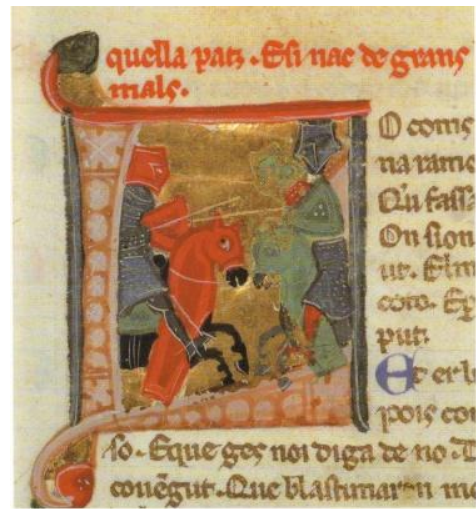 quella patz. Esi nac de grans
mals.
O coms
na ramo
Qu fassa
On sion
ut. El
coto. E
put.
Et er
pois con
so. Eque ges noi diga de no.
couēgut. Que blasmaran me